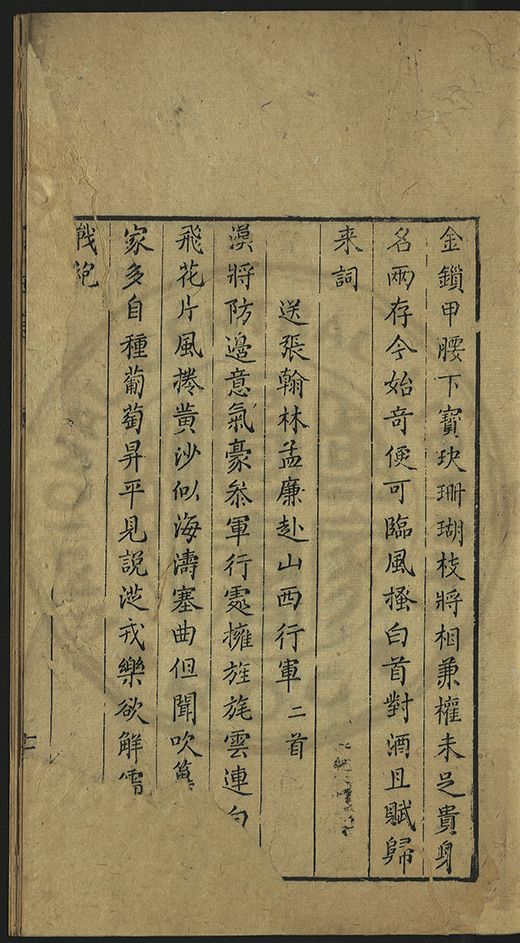 金鎖甲腰下寶玦珊瑚枝將相兼權未足貴身
名兩存今始奇便可臨風搔白首對酒且賦歸
来詞
送張翰林孟廉赴山西行軍二首
漢將防邊意氣豪叅軍行處擁旌旄雲連白
飛花片風捲黄沙似海濤塞曲但聞吹篳
家多自種葡萄昇平見說從戎樂欲解雪
戰袍